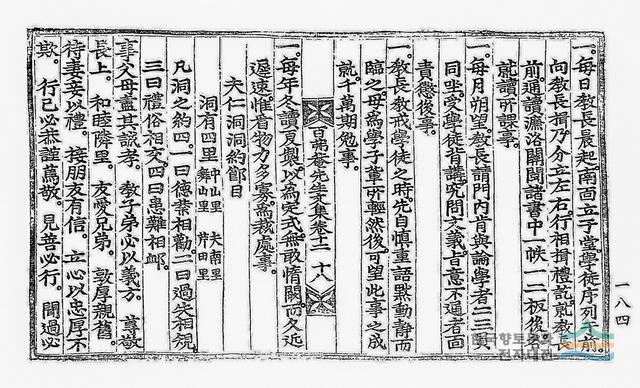 一。每日教長晨起南面立于堂。學徒序列于前。
向教長揖。乃分立左右。行相揖禮訖。就教長
前。通讀濂洛關閩諸書中一帙一二板後。各
就讀所課事。
一。每月朔望。教長請門內首與論學者二三員
同坐受學徒背講。究問文義。旨意不通者面
責懲後事。
一。教長教戒學徒之時。先自愼重語默動靜而
臨之。毋爲學子輩所輕然後。可望此事之成
就。千萬期勉事。
先生文集卷十二 十八
一。每年冬讀夏製。以爲定式。無敢惰闕。而久近
遲速。惟看物力多寡。爲裁處事。
夫仁洞洞約節目
洞有四里 中山里 夫南里 舞山里 芹田里
凡洞之約四。一曰德業相勸。二曰過失相規。
三曰禮俗相交。四曰患難相恤。
事父母盡其誠孝。 教子弟必以義方。 尊敬
長上。 和睦隣里。 友愛兄弟。 敦厚親舊。
待妻妾以禮。 接朋友有信。 立心以忠厚不
欺。 行己必恭謹篤敬。 見善必行。 聞過必
一八四
향토문화
전자대전